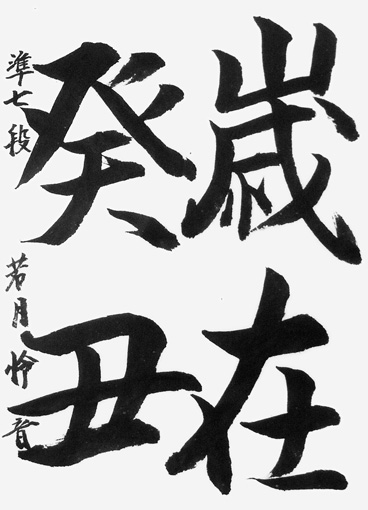 歳在
癸丑
準七段 若月怜音